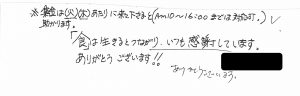 ※集金は(火)(木)あたりに来て下さると(Am10〜16:00までは対応可。)
助かります。
「食」は生きるとつながり、いつも感謝しています。
ありがとうございます!!
ありがとうございます。